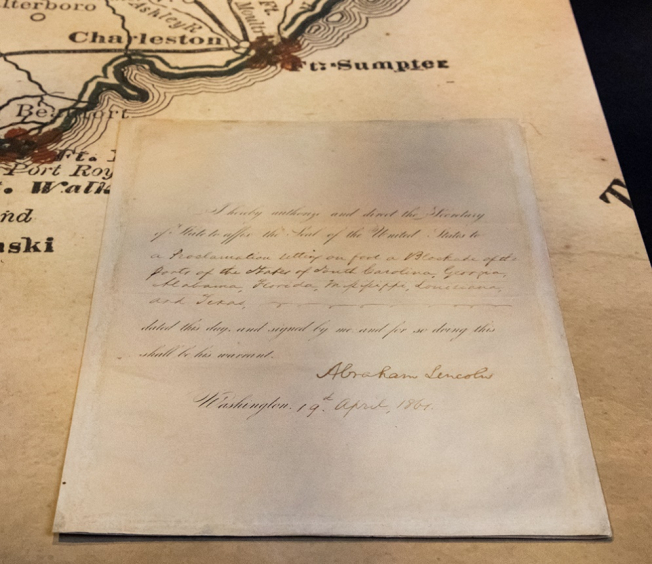 lterboro
Ashley R.
Ft.
Moultri
Charleston
Ft. Sumpter
Beaufort
Ft.
Port Roy
t. Walk
nd
aski
T
I hereby authorize and direct the Secretary
of State to affix the Seal of the United States to
a Proclamation setting on foot a Blockade of the
ports of the States of South Carolina, Georgia,
Alabama, Florida, Mississippi, Louisiana,
and Texas,
dated this day, and signed by me and for so doing this
shall be his warrant.
Abraham Lincoln
Washington, 19th April, 1861.